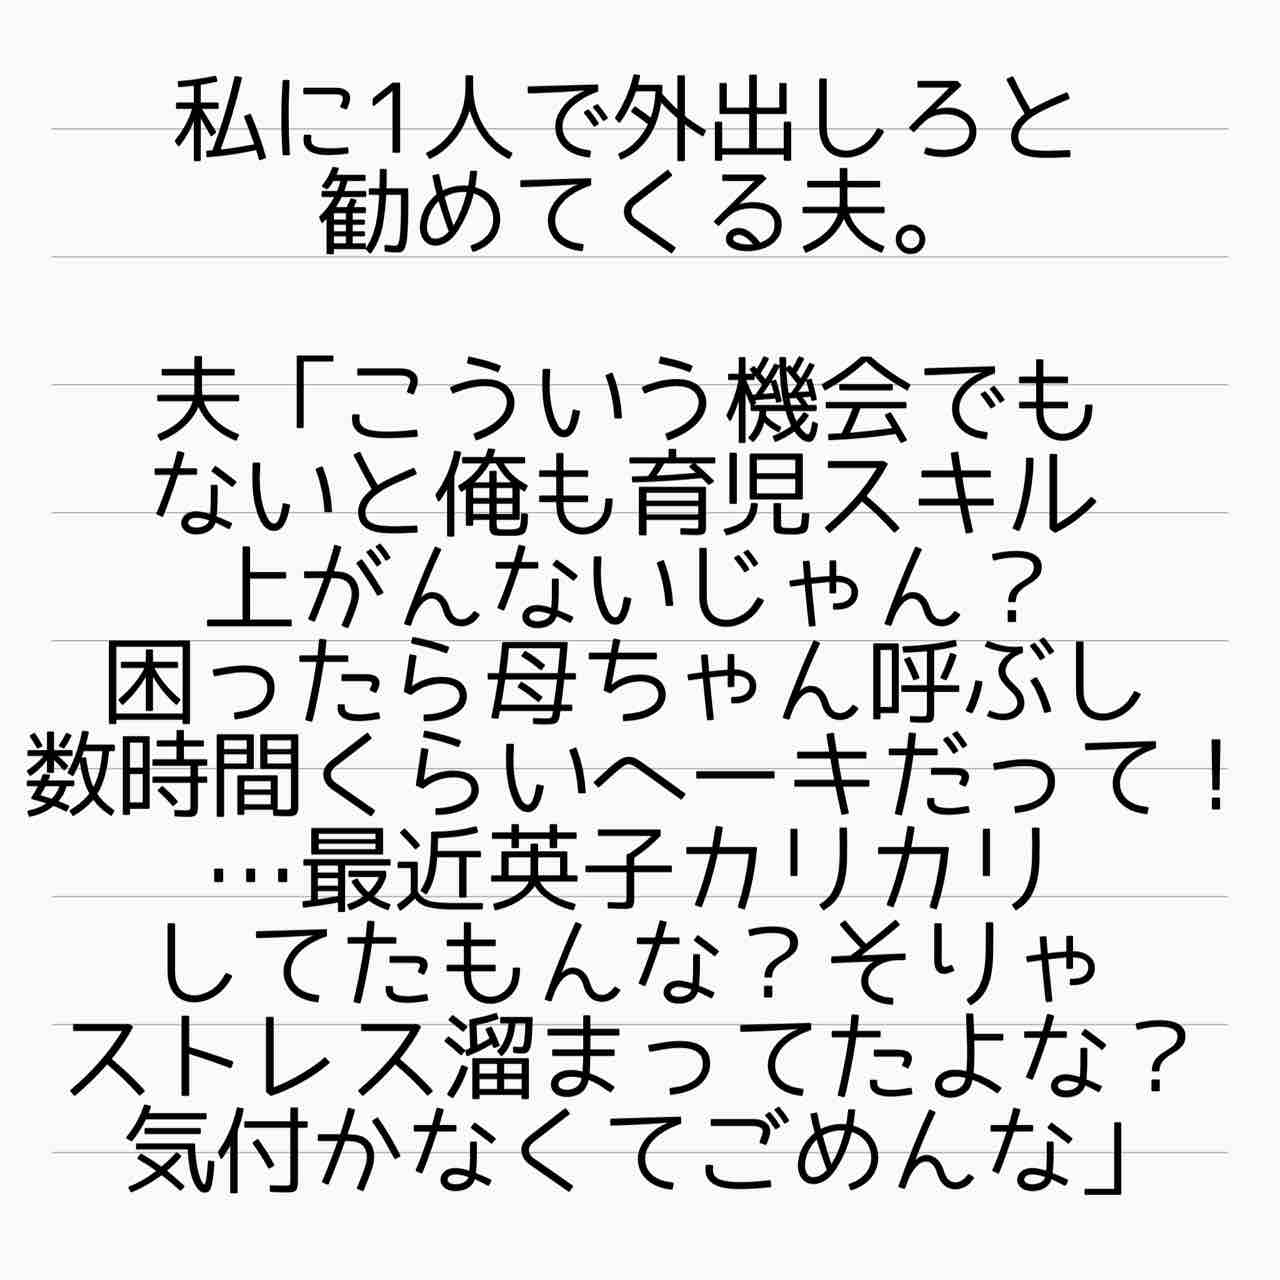 私に1人で外出しろと
勧めてくる夫。
夫「こういう機会でも
ないと俺も育児スキル
上がんないじゃん？
困ったら母ちゃん呼ぶし
数時間くらいヘーキだって！
…最近英子カリカリ
してたもんな？そりゃ
ストレス溜まってたよな？
気付かなくてごめんな」